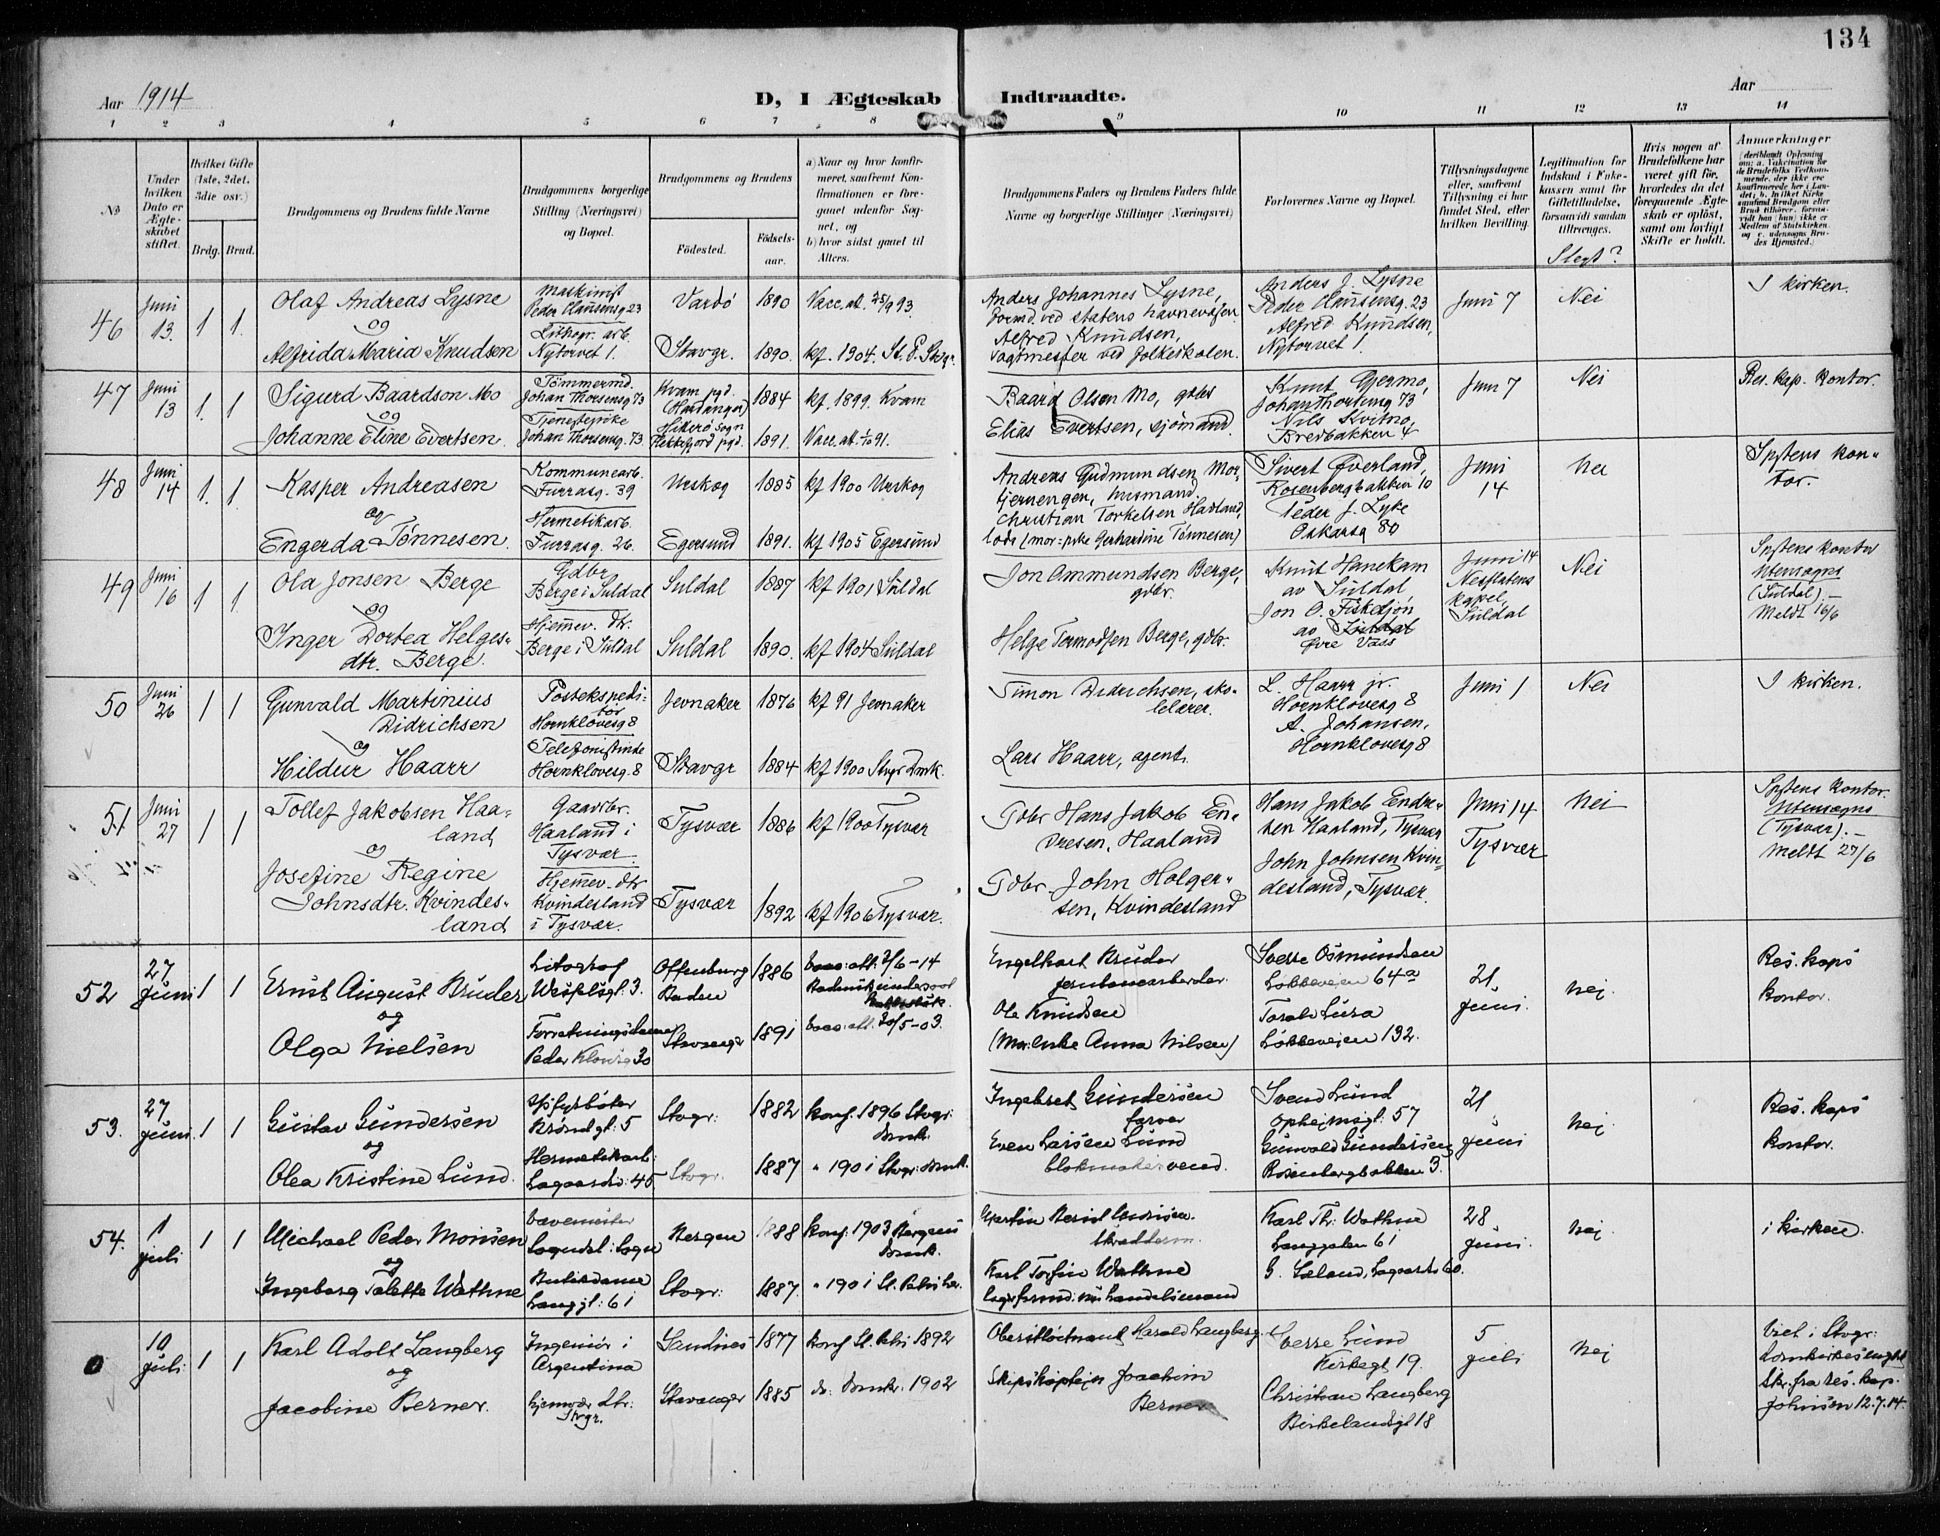 134
Aar 1914
D, I Ægteskab Indtraadte.
Aar
1 2 3 4 5 6 7 8 9 10 11 12 13 14
No
Under hvilken Dato er Ægteskabet stiftet.
Hvilket Gifte (1ste, 2det, 3die osv.)
Brdg. Brud.
Brudgommens og Brudens fulde Navne
Brudgommens borgerlige Stilling (Næringsvei) og Bopæl.
Brudgommens og Brudens
Fødested.
Fødsels-aar.
a) Naar og hvor konfirmeret, saafremt Konfirmationen er foregaaet udenfor Sognet, og
b) hvor sidst gaaet til Alters.
Brudgommens Faders og Brudens Faders fulde Navne og borgerlige Stillinger (Næringsvei)
Forlovernes Navne og Bopæl.
Tillysningsdagene eller, saafremt Tillysning ei har fundet Sted, efter hvilken Bevilling.
Legitimation for Indskud i Enkekassen samt for Giftetilladelse, forsaavidt saadan tiltrænges.
Slegt?
Hvis nogen af Brudefolkene har været gift før, hvorledes da det foregaaende Ægteskab er opløst, samt om lovligt Skifte er holdt.
Anmerkninger
46
Juni 13.
1 1.
Olaf Andreas Lysne
og
Alfrida Maria Knudsen
Maskinist
Peder Hansensg 23
Lithogr. arb.
Nytorvet 1.
Vardö 1890 Vacc. at. 25/9 93.
Stavgr. 1890. kf. 1904. St. P. Stvgr
Anders Johannes Lysne,
formd. ved statens havnevæsen.
Alfred Knudsen,
Vagtmester ved folkeskolen.
Anders J. Lysne
Peder Hansensg. 23
Alfred Knudsen,
Nytorvet 1.
Juni 7
Nei
I kirken.
47
Juni 13
1. 1
Sigurd Baardson Mo
og
Johanne Eline Evertsen.
Tømmermd.
Johan Thorsensg 73
Tjenestepike
Johan Thorsensg. 73
Kvam pgd.
(Hardanger) 1884 kf. 1899. Kvam
Hiterö sogn
pgd. 1891. Vacc. at.
Baard Olsen Mo, gdbr
Elias Evertsen, sjømand.
Knut Gjermo,
Johan Thorsensg 73
Nils Kvitno,
Bredbakken 4
Juni 7
Nei
Res. kap. kontor.
48
Juni 14
1. 1
Kasper Andreasen
og
Engerda Tønnesen.
Kommunearb.
Furrasg. 39
Hermetikarb.
Furrasg. 26.
Urskog 1885 kf 1900 Urskog
Egersund 1891. kf 1905 Egersund
Andreas Gudmundsen Mortjernengen, husmand
Christian Torkelsen Hadland,
lods (mor: pike Gerhardine Tønnesen)
Sivert Øverland,
Rosenbergbakken 10
Peder J. Lyke
Oskarsg 80
Juni 14
Nei
Spstens kontor.
49
Juni 16
1 1.
Ola Jonsen Berge
og
Inger Dortea Helgesdtr. Berge.
Gdbr
Berge i Suldal
Hjemmev. dtr.
Berge i Suldal
Suldal 1887 kf 1901 Suldal
Suldal 1890. kf 1904 Suldal
Jon Ammundsen Berge,
gdbr.
Helge Tormodsen Berge, gdbr.
Knut Hanekam
av Suldal,
Jon O. Fiskedjon
av Suldal
Øvre Vats
Juni 14
Nesflatens
kapel,
Suldal
Nei
Spstens kontor
Utensogns
(Suldal).-
Meldt 16/6
50
Juni 26
1 1
Gunvald Martinius
Didrichsen
og
Hildur Haarr
Postekspeditör
Hornklovesg 8
Telefonistinde
Hornklovesg. 8
Jevnaker 1876 kf 91 Jevnaker
Stavgr 1884 kf 1900 Stvgr Dmk.
Simon Didrichsen, skolelærer.
Lars Haarr, agent.
L. Haarr jr.
Hornklovesg 8
A. Johansen,
Hornklovesg 8
Juni 1
Nei
I kirken.
51
Juni 27
1 1
Tollef Jakobsen Haaland
og
Josefine Regine
Johnsdtr. Kvindesland
Gaardbr.
Haaland i
Tysvær.
Hjemmev. dtr
Kvindesland
i Tysvær.
Tysvær 1886 kf 1900 Tysvær
Tysvær 1892 kf 1906 Tysvær.
Gdbr Hans Jakob Endresen, Haaland
Gdbr. John Holgersen, Kvindesland
Hans Jakob Endresen Haaland, Tysvær
John Johnsen Kvindesland, Tysvær.
Juni 14
Tysvær
Nei
Spstens kontor.
Utensogns
(Tysvær).-
Meldt 27/6
52
27 Juni
1 1
Ernst August Bruder
og
Olga Nielsen
Litograf
Wesselsgt. 3.
Forretningsdame
Peder Klowsg 30
Offenburg
Baden 1886 vacc: att: 2/6-14
Stavanger 1891 vacc: att. 20/5-03.
Engelhart Bruder
jernbanearbeider
Ole Knudsen
(Mor: enke Anna Nilsen)
Sverre Osmundsen
Løkkeveien 64a
Torals Lura
Løkkeveien 132.
21 Juni
Nej.
Res. kaps
kontor.
53.
27 Juni
1 1
Gustav Gundersen
og
Olea Kristine Lund.
Brøndgt. 5
Hermetikarb:
Lagaardsv: 45
Stvgr: 1882 konf. 1896 Stvgr: Dmk.
Stvgr. 1887 " 1901 Stvgr: Dmk.
Ingebret Gundersen
farver
Even Larsen Lund
blokmakersvend.
Svend Lund
Ophejmsgt. 57
Gunvald Gundersen
Rosenbergbakken 3.
21 Juni
Nej.
Res. kaps
kontor.
54.
1 Juli
1 1
Michael Peder Monsen
og
Ingeborg Talette Wathne
Vævemester
Butikdame
Langgt: 61
Bergen 1888 konf. 1903 Bergens Dmk.
Stvgr: 1887. " 1901 St. Petri
Karl Torfin Wathne
Karl Th: Wathne
Langgaten 61
G. Læland, Lagaardsv 60.
28 Juni.
Nej.
i kirken.
0
10 Juli:
1 1
Karl Adolf Langberg
og
Jacobine Berner.
Ingeniør i
Argentina
hjemvær. dtr:
Stvgr.
Sandnes 1877 konf St. Petri 1892
Stavanger 1885 do: Dmk: 1902
Oberstløitnant Harald Langberg.
Skipskaptejn Joachim
Berner
Sverre Lund
Kirkegt 19.
Christian Langberg
Birkelandsgt 18
5 Juli
Nej
Viet i Stvgr:
Domkirke
fra res. kap.
Johnsen 12.7.14.